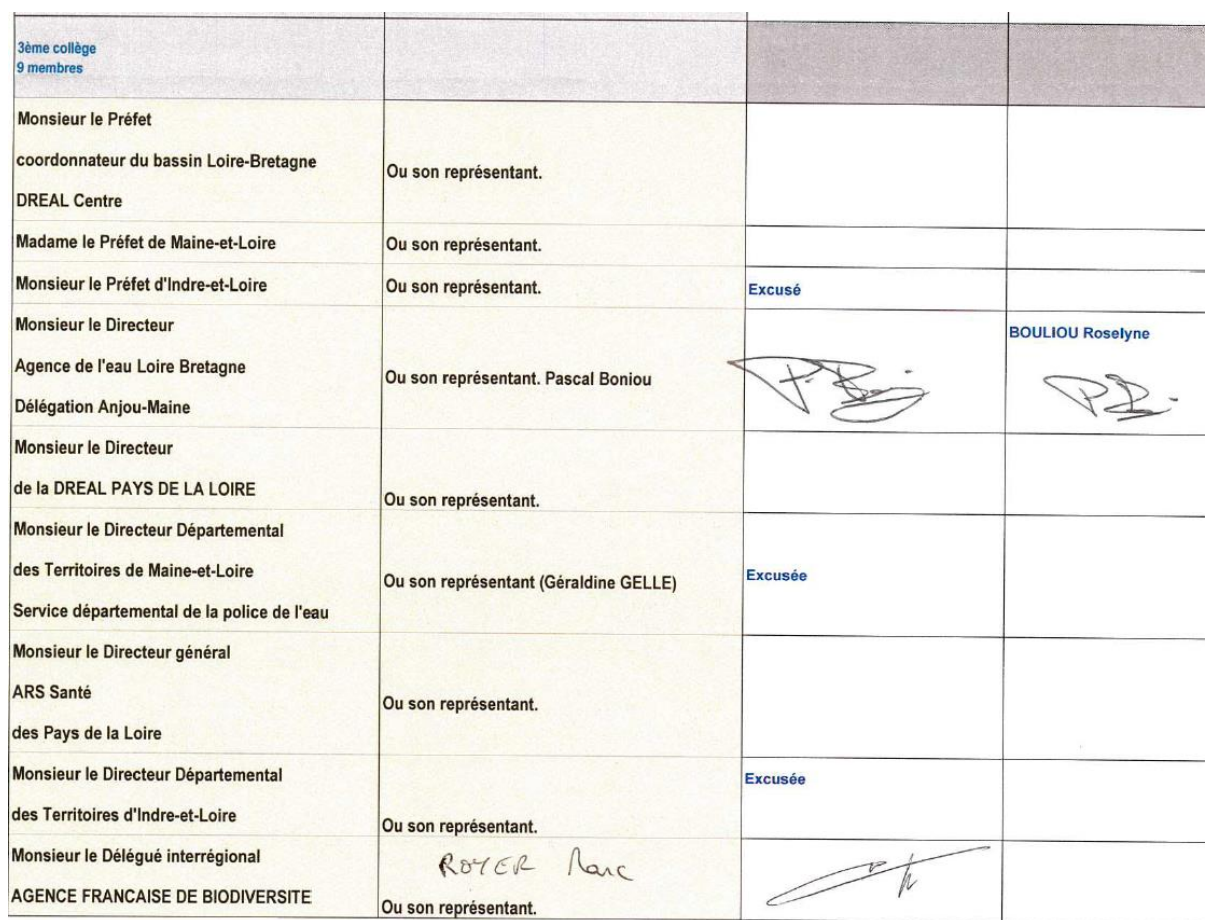 3ème collège
9 membres
Monsieur le Préfet
coordonnateur du bassin Loire-Bretagne
DREAL Centre
Ou son représentant.
Madame le Préfet de Maine-et-Loire
Ou son représentant.
Monsieur le Préfet d'Indre-et-Loire
Ou son représentant.
Excusé
Monsieur le Directeur
Agence de l'eau Loire Bretagne
Délégation Anjou-Maine
Ou son représentant. Pascal Boniou
BOULIOU Roselyne
Monsieur le Directeur
de la DREAL PAYS DE LA LOIRE
Ou son représentant.
Monsieur le Directeur Départemental
des Territoires de Maine-et-Loire
Service départemental de la police de l'eau
Ou son représentant (Géraldine GELLE)
Excusée
Monsieur le Directeur général
ARS Santé
des Pays de la Loire
Ou son représentant.
Monsieur le Directeur Départemental
des Territoires d'Indre-et-Loire
Ou son représentant.
Excusée
Monsieur le Délégué interrégional
AGENCE FRANCAISE DE BIODIVERSITE
ROYER Marc
Ou son représentant.